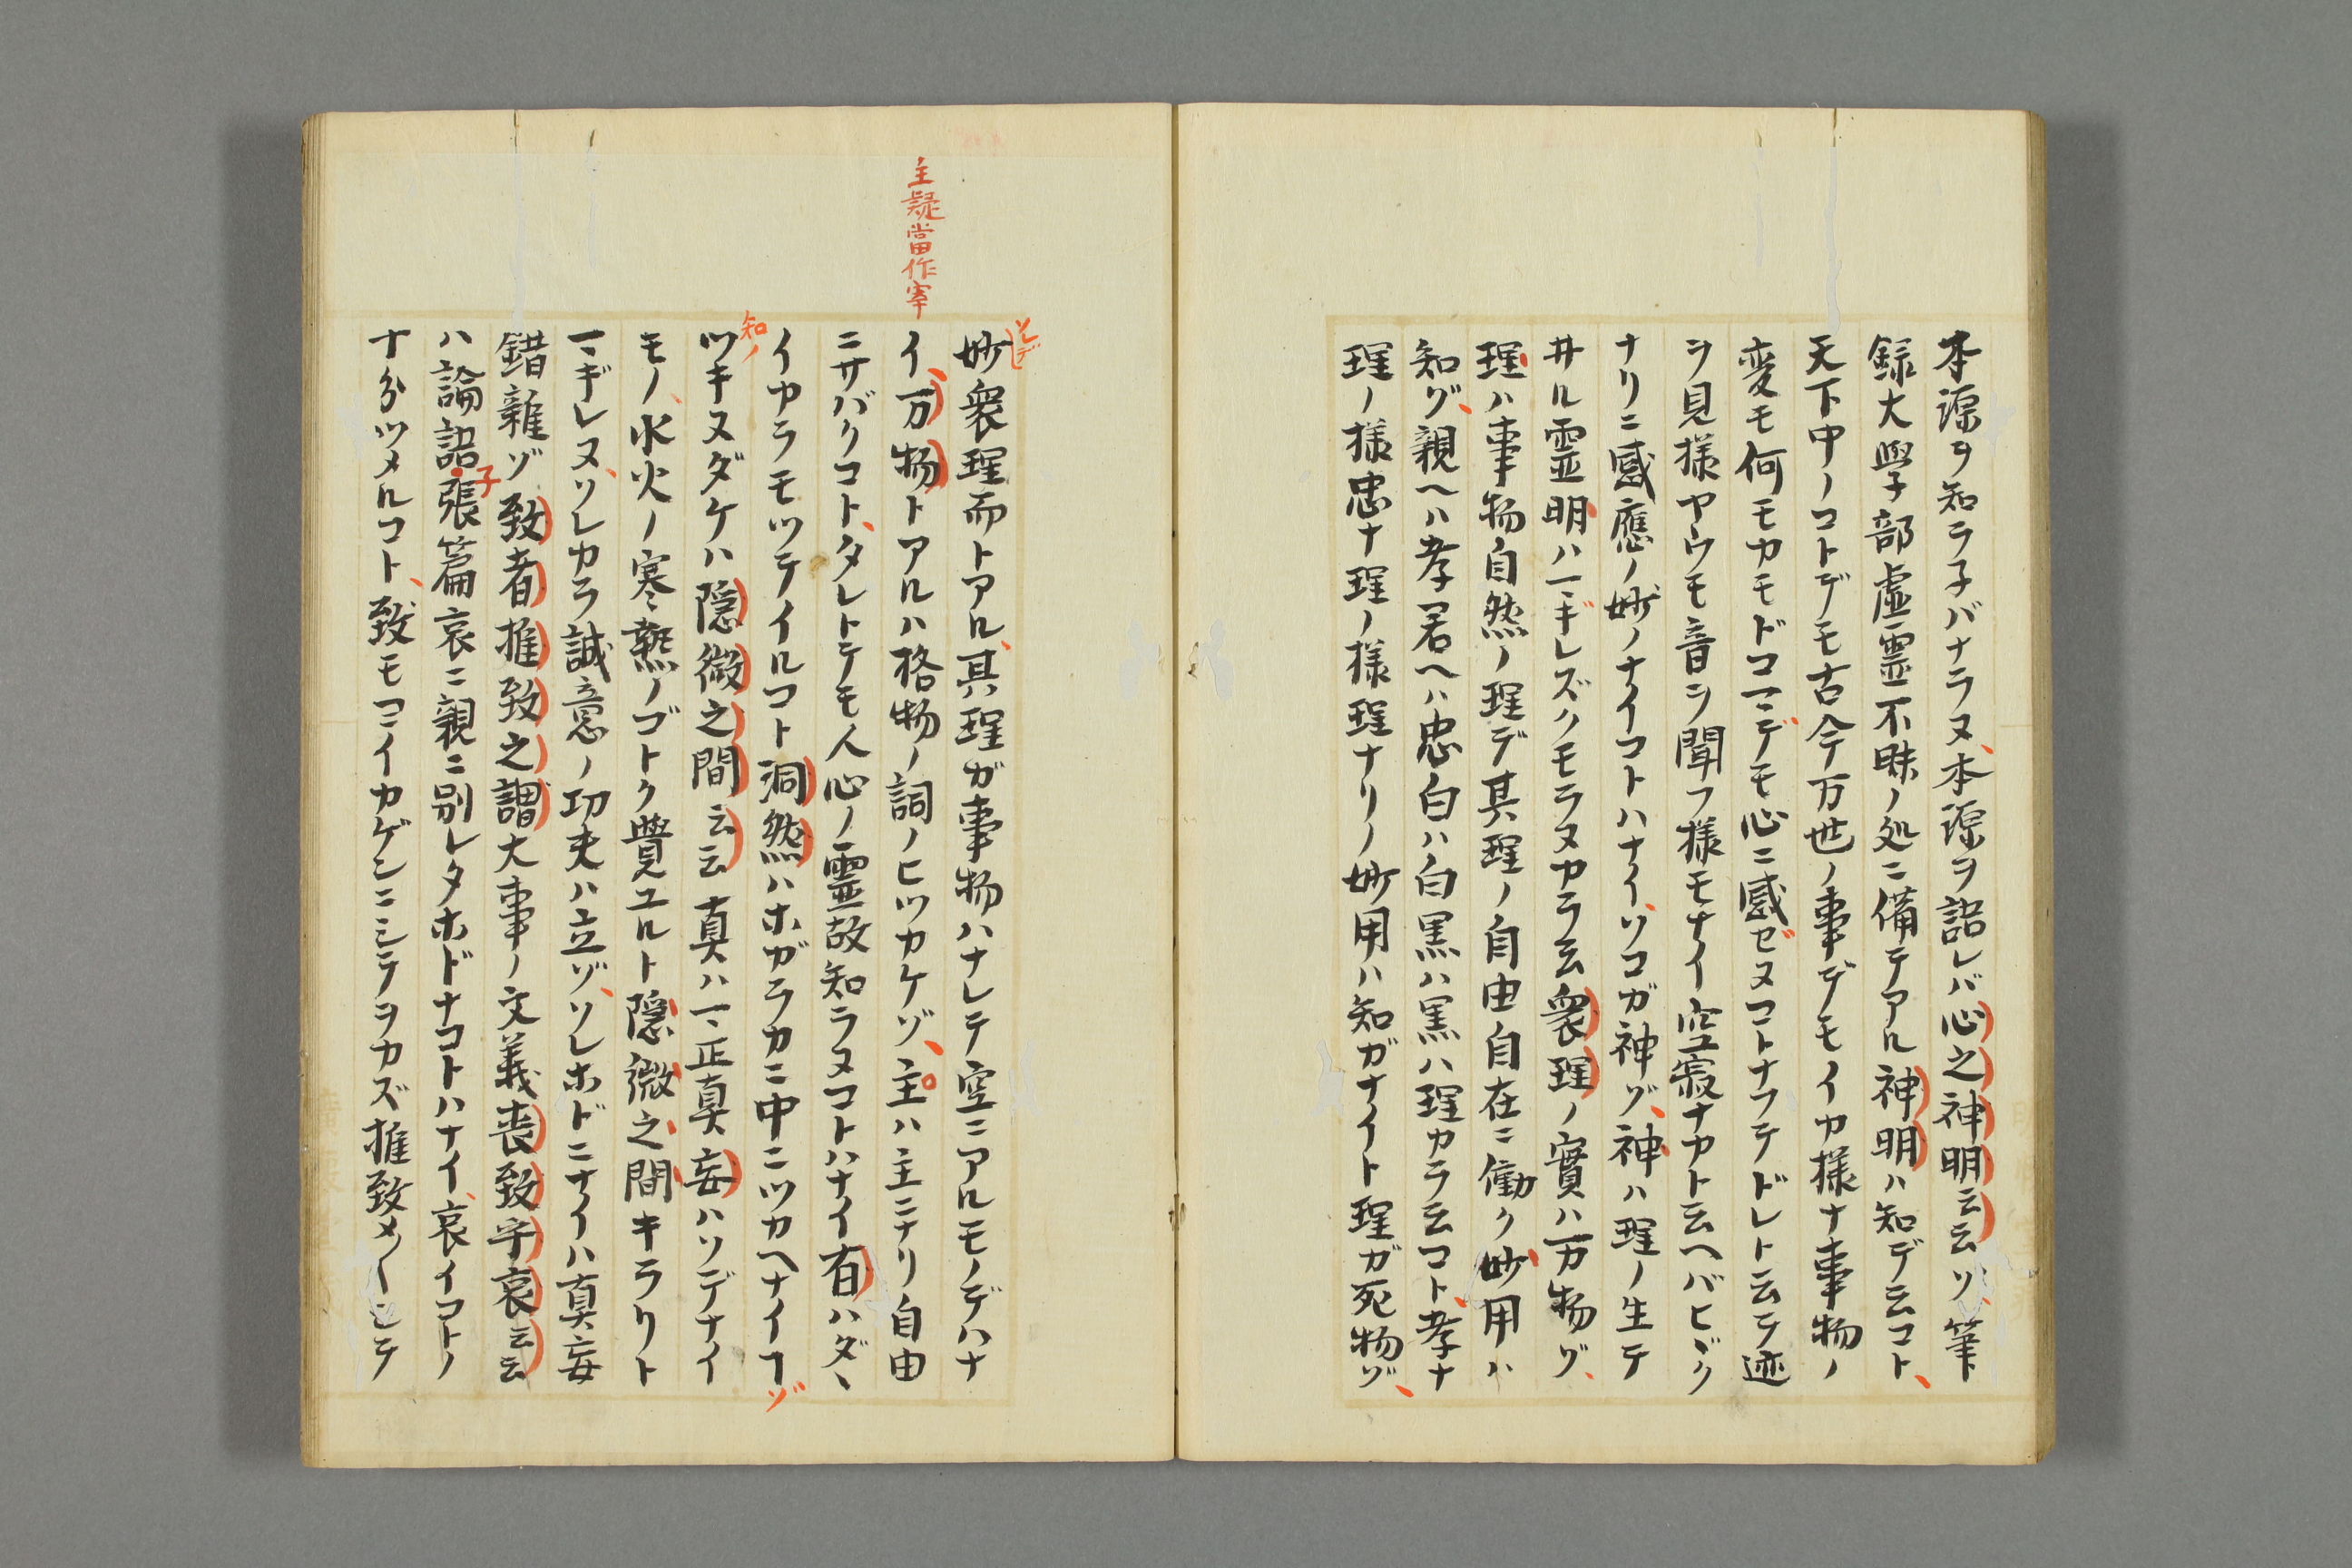 本源ヲ知ラ子バナラヌ、本源ヲ語レバ心之神明云云ソ、筆
録大學部虚霊不昧ノ処ニ備テアル神明ハ知デ云コト、
天下中ノコトデモ古今万世ノ事デモイカ様ナ事物ノ
変モ何モカモドコマデモ心ニ感ゼヌコトナフテドレト云テ迹
ヲ見様ヤウモ音ヲ聞フ様モナイ空寂ナカト云ヘバヒヾク
ナリニ感應ノ妙ノナイコトハナイ、ソコガ神ゾ、神ハ理ノ生テ
井ル霊明ハマギレズクモラヌカラ云衆理ノ實ハ万物ゾ、
理ハ事物自然ノ理デ其理ノ自由自在ニ働ク妙用ハ
知ゾ、親ヘハ孝君ヘハ忠白ハ白黒ハ黒ハ理カラ云コト、孝ナ
理ノ様忠ナ理ノ様理ナリノ妙用ハ知ガナイト理ガ死物ゾ、
ソレデ
妙衆理而トアル、其理ガ事物ハナレテ空ニアルモノデハナ
主疑當作宰
イ、万物トアルハ格物ノ詞ノヒツカケゾ、主ハ主ニナリ自由
ニサバクコト、タレトテモ人心ノ霊故知ラヌコトハナイ有ハダヽ
イカラモツテイルコト洞然ハホガラカニ中ニツカヘナイヿゾ
知ノ
ツキヌダケハ隠微之間云云真ハマ正真妄ハソデナイ
モノ、水火ノ寒熱ノゴトク覺ユルト隠微之間キラリト
マギレヌ、ソレカラ誠意ノ功夫ハ立ゾ、ソレホドニナイハ真妄
錯雜ゾ致者推致之謂大事ノ文義喪致乎哀云云
ハ論語子張篇哀ニ親ニ別レタホドナコトハナイ、哀イコトノ
十分ツメルコト、致モコヽイカゲンニシテヲカズ推致メ〱シテ